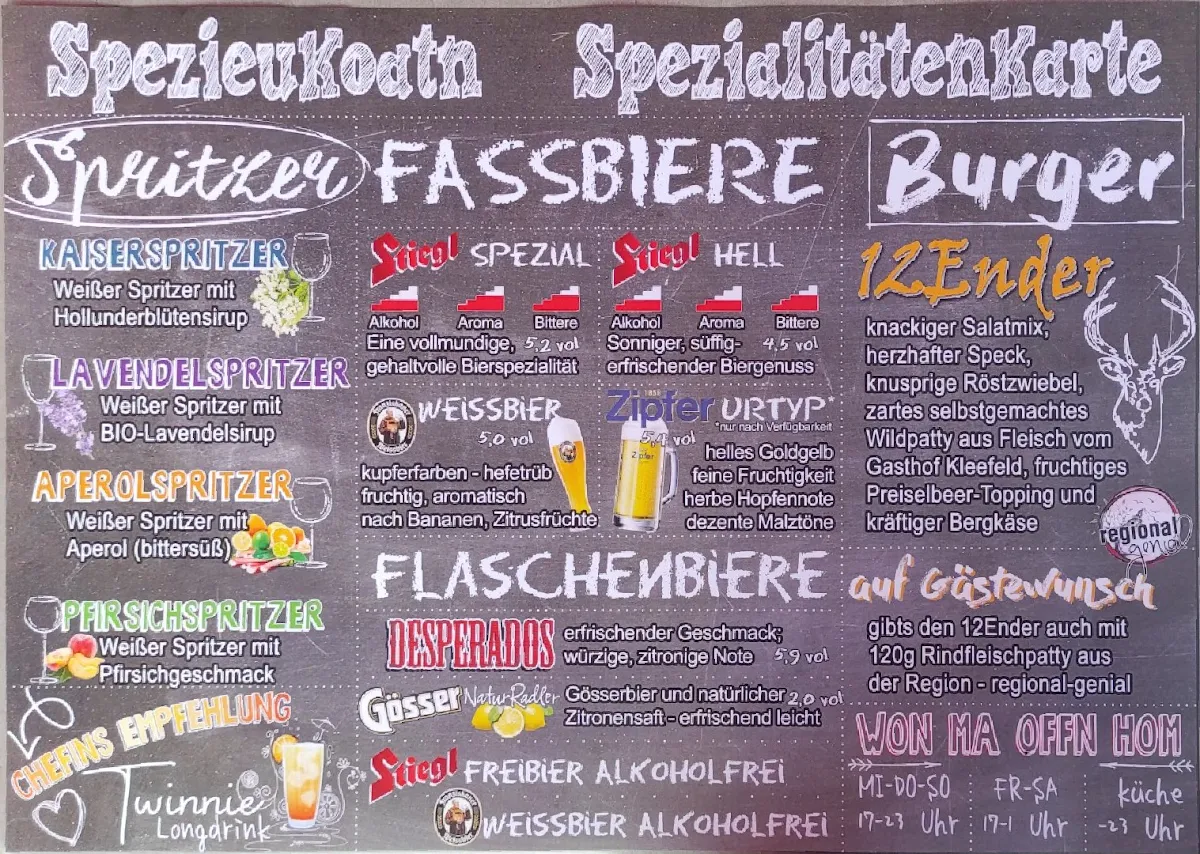 Spezieukoatn
Spezialitätenkarte
Spritzer
KAISERSPRITZER
Weißer Spritzer mit
Hollunderblütensirup
LAVENDELSPRITZER
Weißer Spritzer mit
BIO-Lavendelsirup
APEROLSPRITZER
Weißer Spritzer mit
Aperol (bittersüß)
PFIRSICHSPRITZER
Weißer Spritzer mit
Pfirsichgeschmack
CHEFINS EMPFEHLUNG
Twinnie
Longdrink
FASSBIERE
Stiegl SPEZIAL
Alkohol Aroma Bittere
Eine vollmundige, 5,2 vol
gehaltvolle Bierspezialität
Stiegl HELL
Alkohol Aroma Bittere
Sonniger, süffig- 4,5 vol
erfrischender Biergenuss
WEISSBIER
5,0 vol
kupferfarben - hefetrüb
fruchtig, aromatisch
nach Bananen, Zitrusfrüchte
1858
Zipfer URTYP*
*nur nach Verfügbarkeit
5,4 vol
Zipfer
helles Goldgelb
feine Fruchtigkeit
herbe Hopfennote
dezente Malztöne
FLASCHENBIERE
DESPERADOS
erfrischender Geschmack;
würzige, zitronige Note 5,9 vol
Gösser NaturRadler
Gösserbier und natürlicher 2,0 vol
Zitronensaft - erfrischend leicht
Stiegl FREIBIER ALKOHOLFREI
WEISSBIER ALKOHOLFREI
Burger
12Ender
knackiger Salatmix,
herzhafter Speck,
knusprige Röstzwiebel,
zartes selbstgemachtes
Wildpatty aus Fleisch vom
Gasthof Kleefeld, fruchtiges
Preiselbeer-Topping und
kräftiger Bergkäse
regional
genial
auf Gästewunsch
gibts den 12Ender auch mit
120g Rindfleischpatty aus
der Region - regional-genial
WON MA OFFN HOM
MI-DO-SO FR-SA küche
17-23 Uhr 17-1 Uhr -23 Uhr